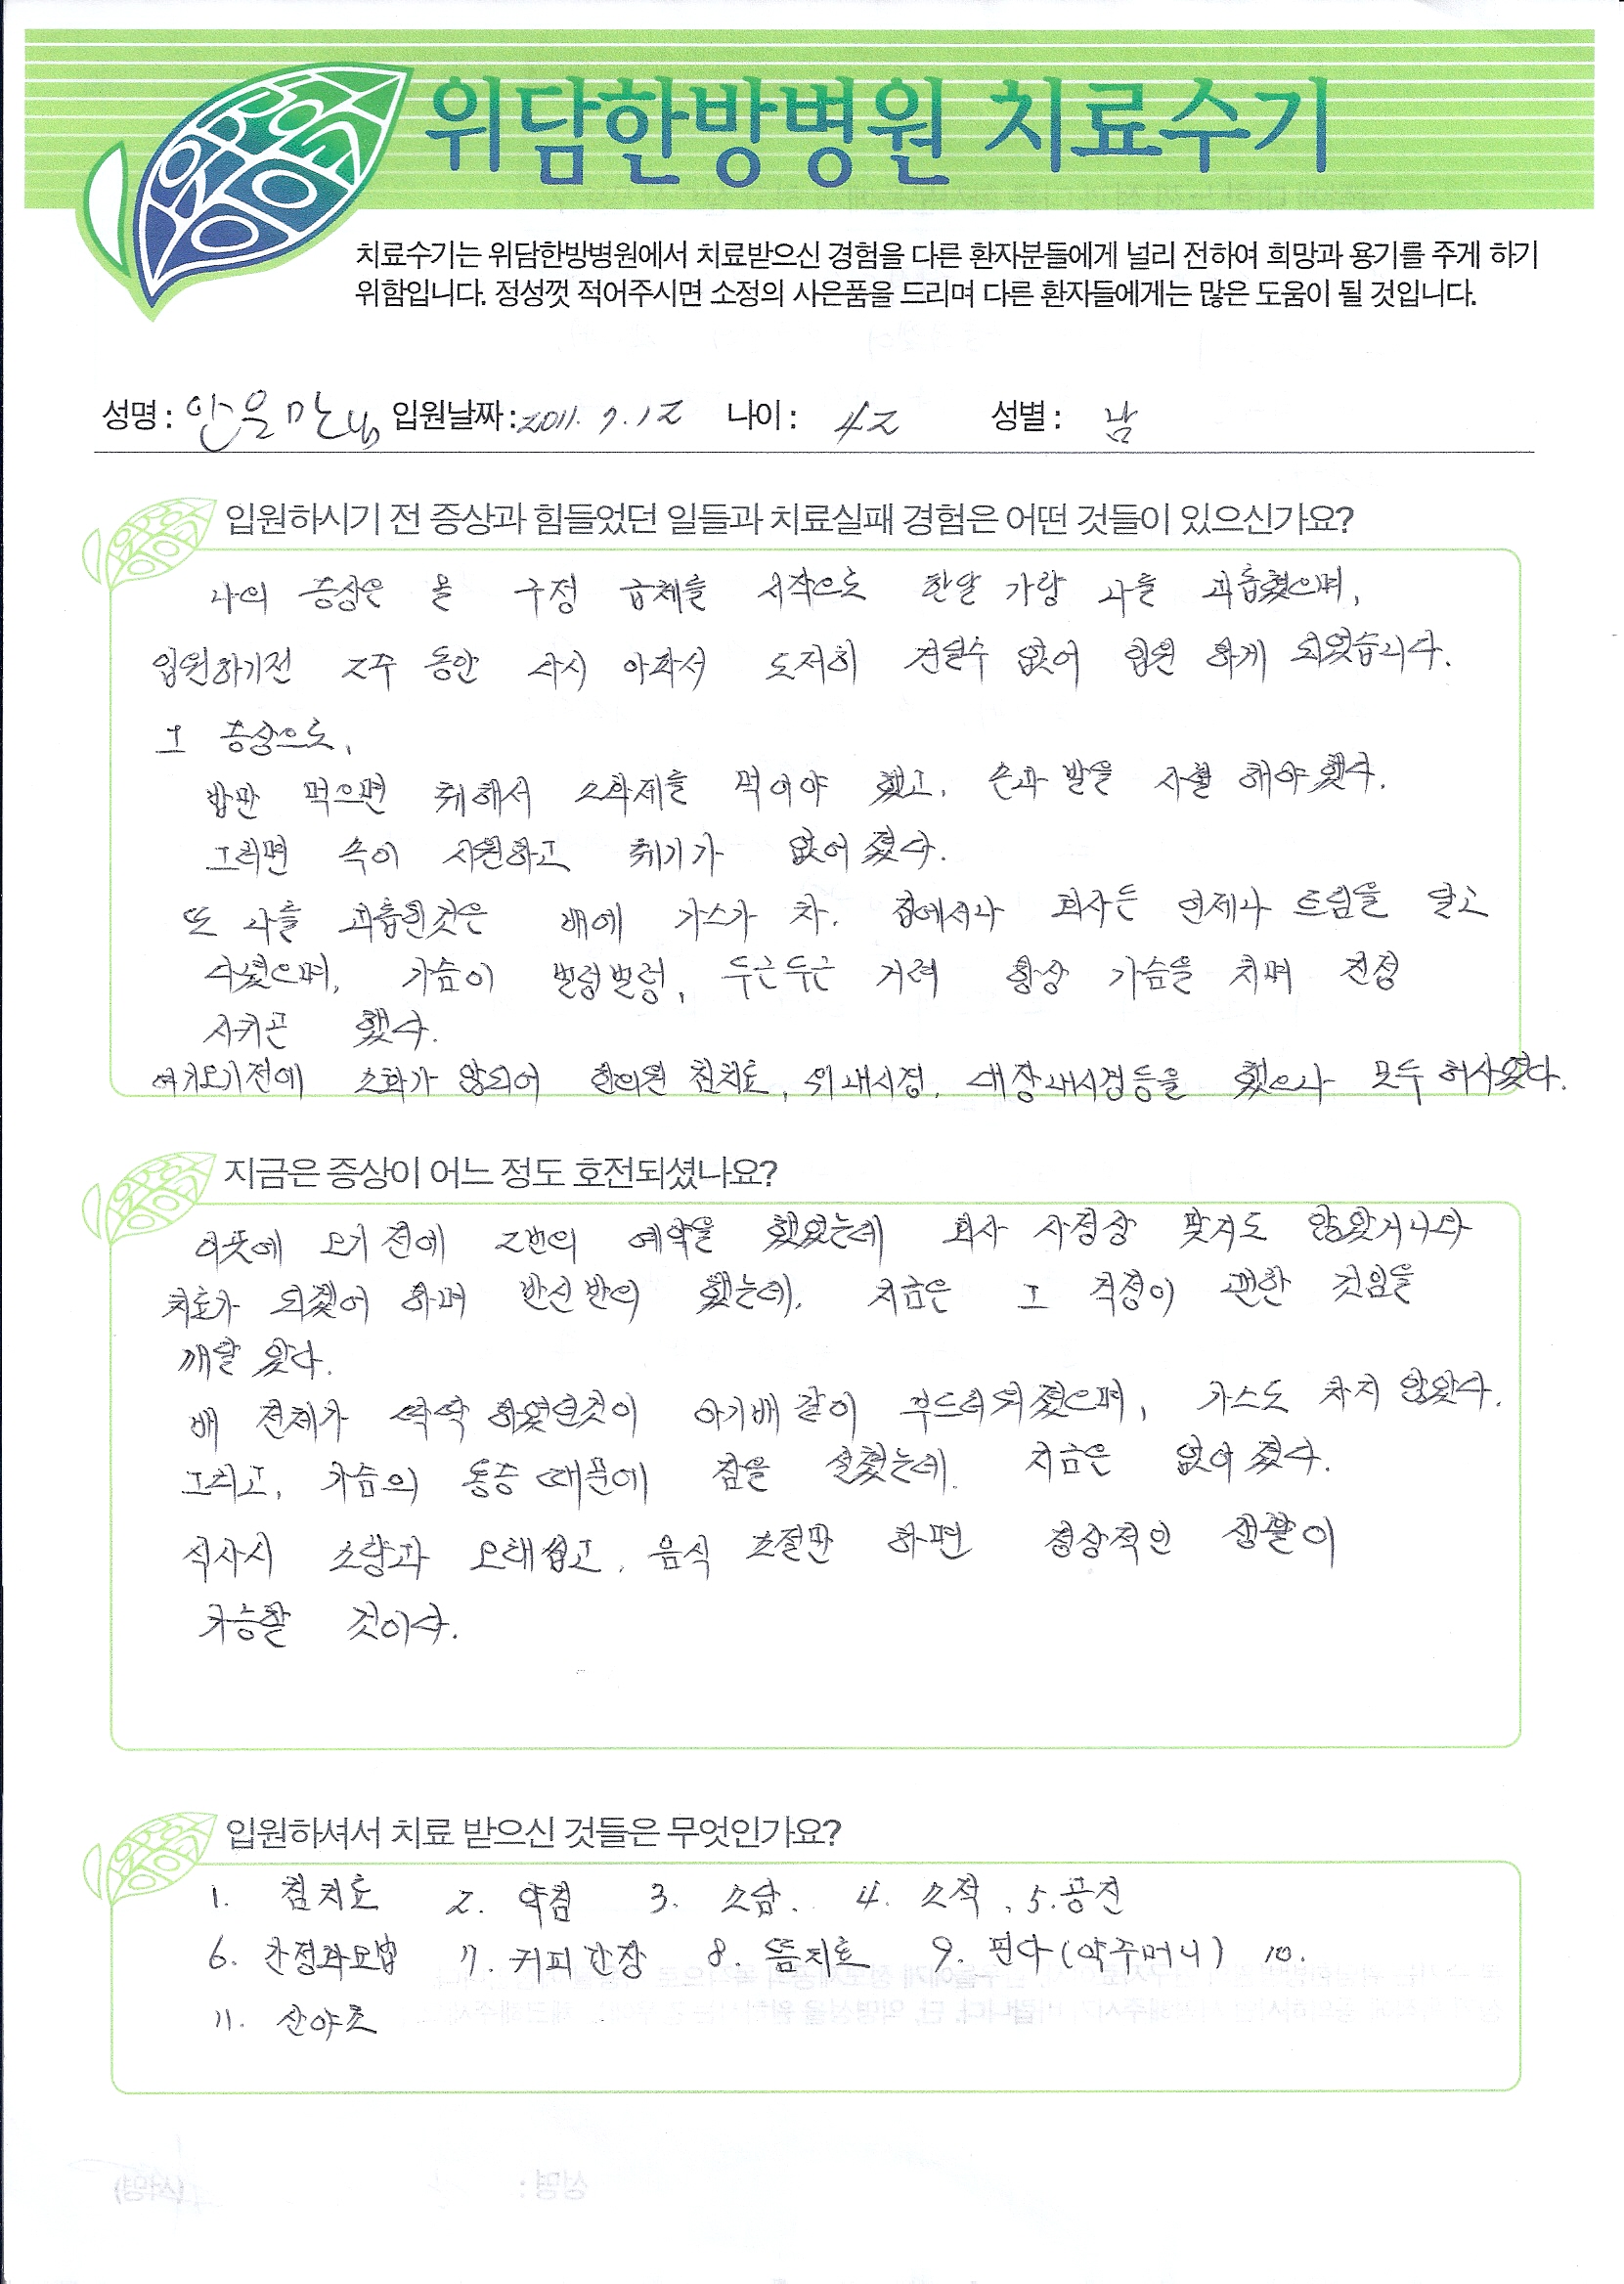 위담한방병원 치료수기
치료수기는 위담한방병원에서 치료받으신 경험을 다른 환자분들에게 널리 전하여 희망과 용기를 주게 하기
위함입니다. 정성껏 적어주시면 소정의 사은품을 드리며 다른 환자들에게는 많은 도움이 될 것입니다.
성명 : 안을만님 입원날짜 : 2011. 7. 12 나이 : 42 성별 : 남
입원하시기 전 증상과 힘들었던 일들과 치료실패 경험은 어떤 것들이 있으신가요?
나의 증상은 올 구정 급체를 시작으로 한달 가량 나를 괴롭혔으며,
입원하기전 2주 동안 다시 아파서 도저히 견딜수 없어 입원 하게 되었습니다.
그 증상으로,
밥만 먹으면 취해서 소화제를 먹어야 했고, 손과 발을 사혈 해야했다.
그러면 속이 시원하고 취기가 없어졌다.
또 나를 괴롭힌것은 배에 가스가 차, 집에서나 회사든 언제나 트림을 달고
다녔으며, 가슴이 벌렁벌렁, 두근두근 거려 항상 가슴을 치며 진정
시키곤 했다.
여기오기전에 소화가 않되어 한의원 침치료, 위내시경, 대장내시경등을 했으나 모두 허사였다.
지금은 증상이 어느 정도 호전되셨나요?
이곳에 오기 전에 2번의 예약을 했었는데 회사 사정상 맞지도 않았거니와
치료가 되겠어 하며 반신반의 했는데, 지금은 그 걱정이 괜한 것임을
깨달았다.
배 전체가 딱딱 하였던것이 아기배 같이 부드러워졌으며, 가스도 차지 않았다.
그리고, 가슴의 통증 때문에 잠을 설쳤는데 지금은 없어졌다.
식사시 소량과 오래씹고, 음식 조절만 하면 정상적인 생활이
가능할 것이다.
입원하셔서 치료 받으신 것들은 무엇인가요?
1. 침치료 2. 약침 3. 소담. 4. 소적, 5. 공진
6. 간정화요법 7. 커피관장 8. 뜸치료 9. 핀다(약주머니) 10.
11. 산야초
성명 :
(서명)